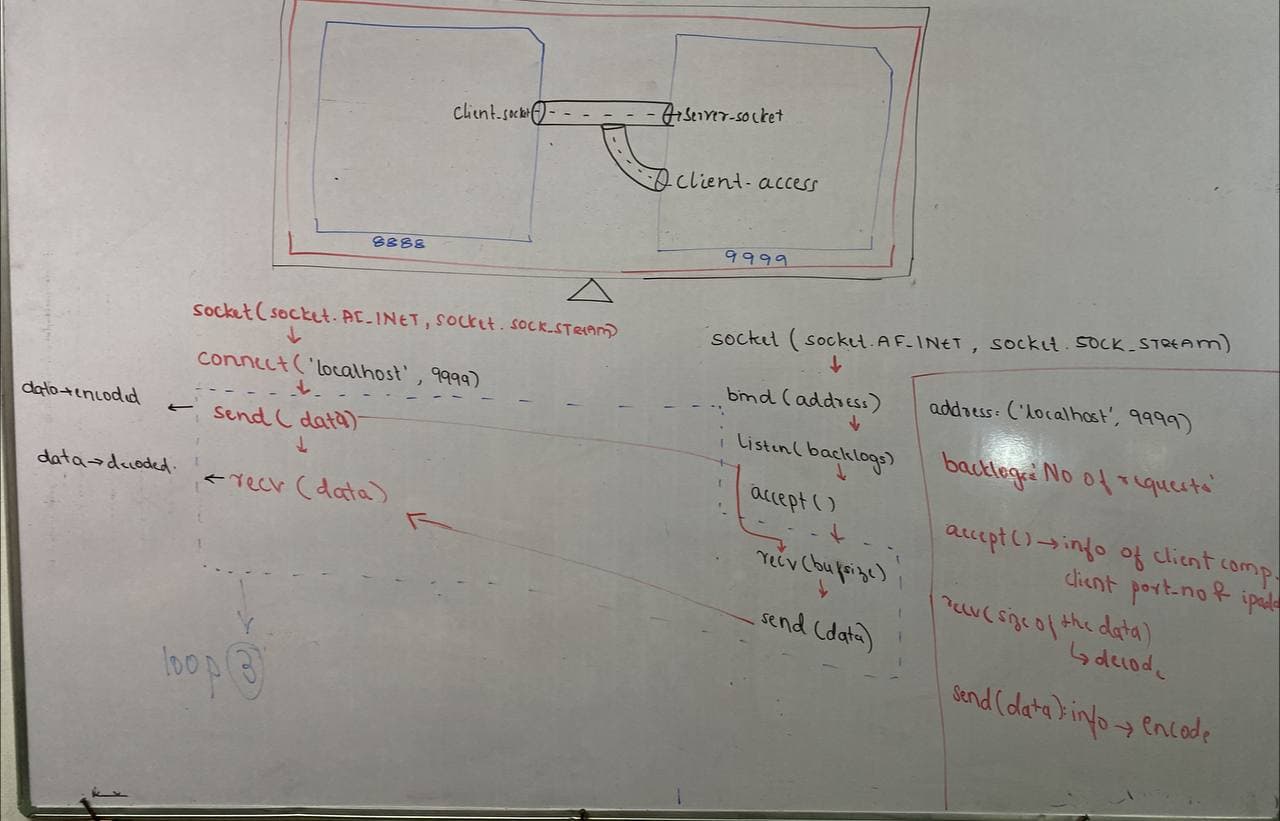 Client-socket
→server-socket
client-access
8888
9999
socket(socket.AF_INET, socket.SOCK_STREAM)
connect('localhost', 9999)
data→encoded
← send(data)
data→decoded.
← recv (data)
loop 3
socket (socket.AF_INET, socket.SOCK_STREAM)
bind (address)
listen(backlogs)
accept()
recv(bufsize)
send (data)
address: ('localhost', 9999)
backlogs: 'No of requests'
accept() → info of client comp.
client port-no & ipadd
recv(size of the data)
↳ decode
send(data): info → encode